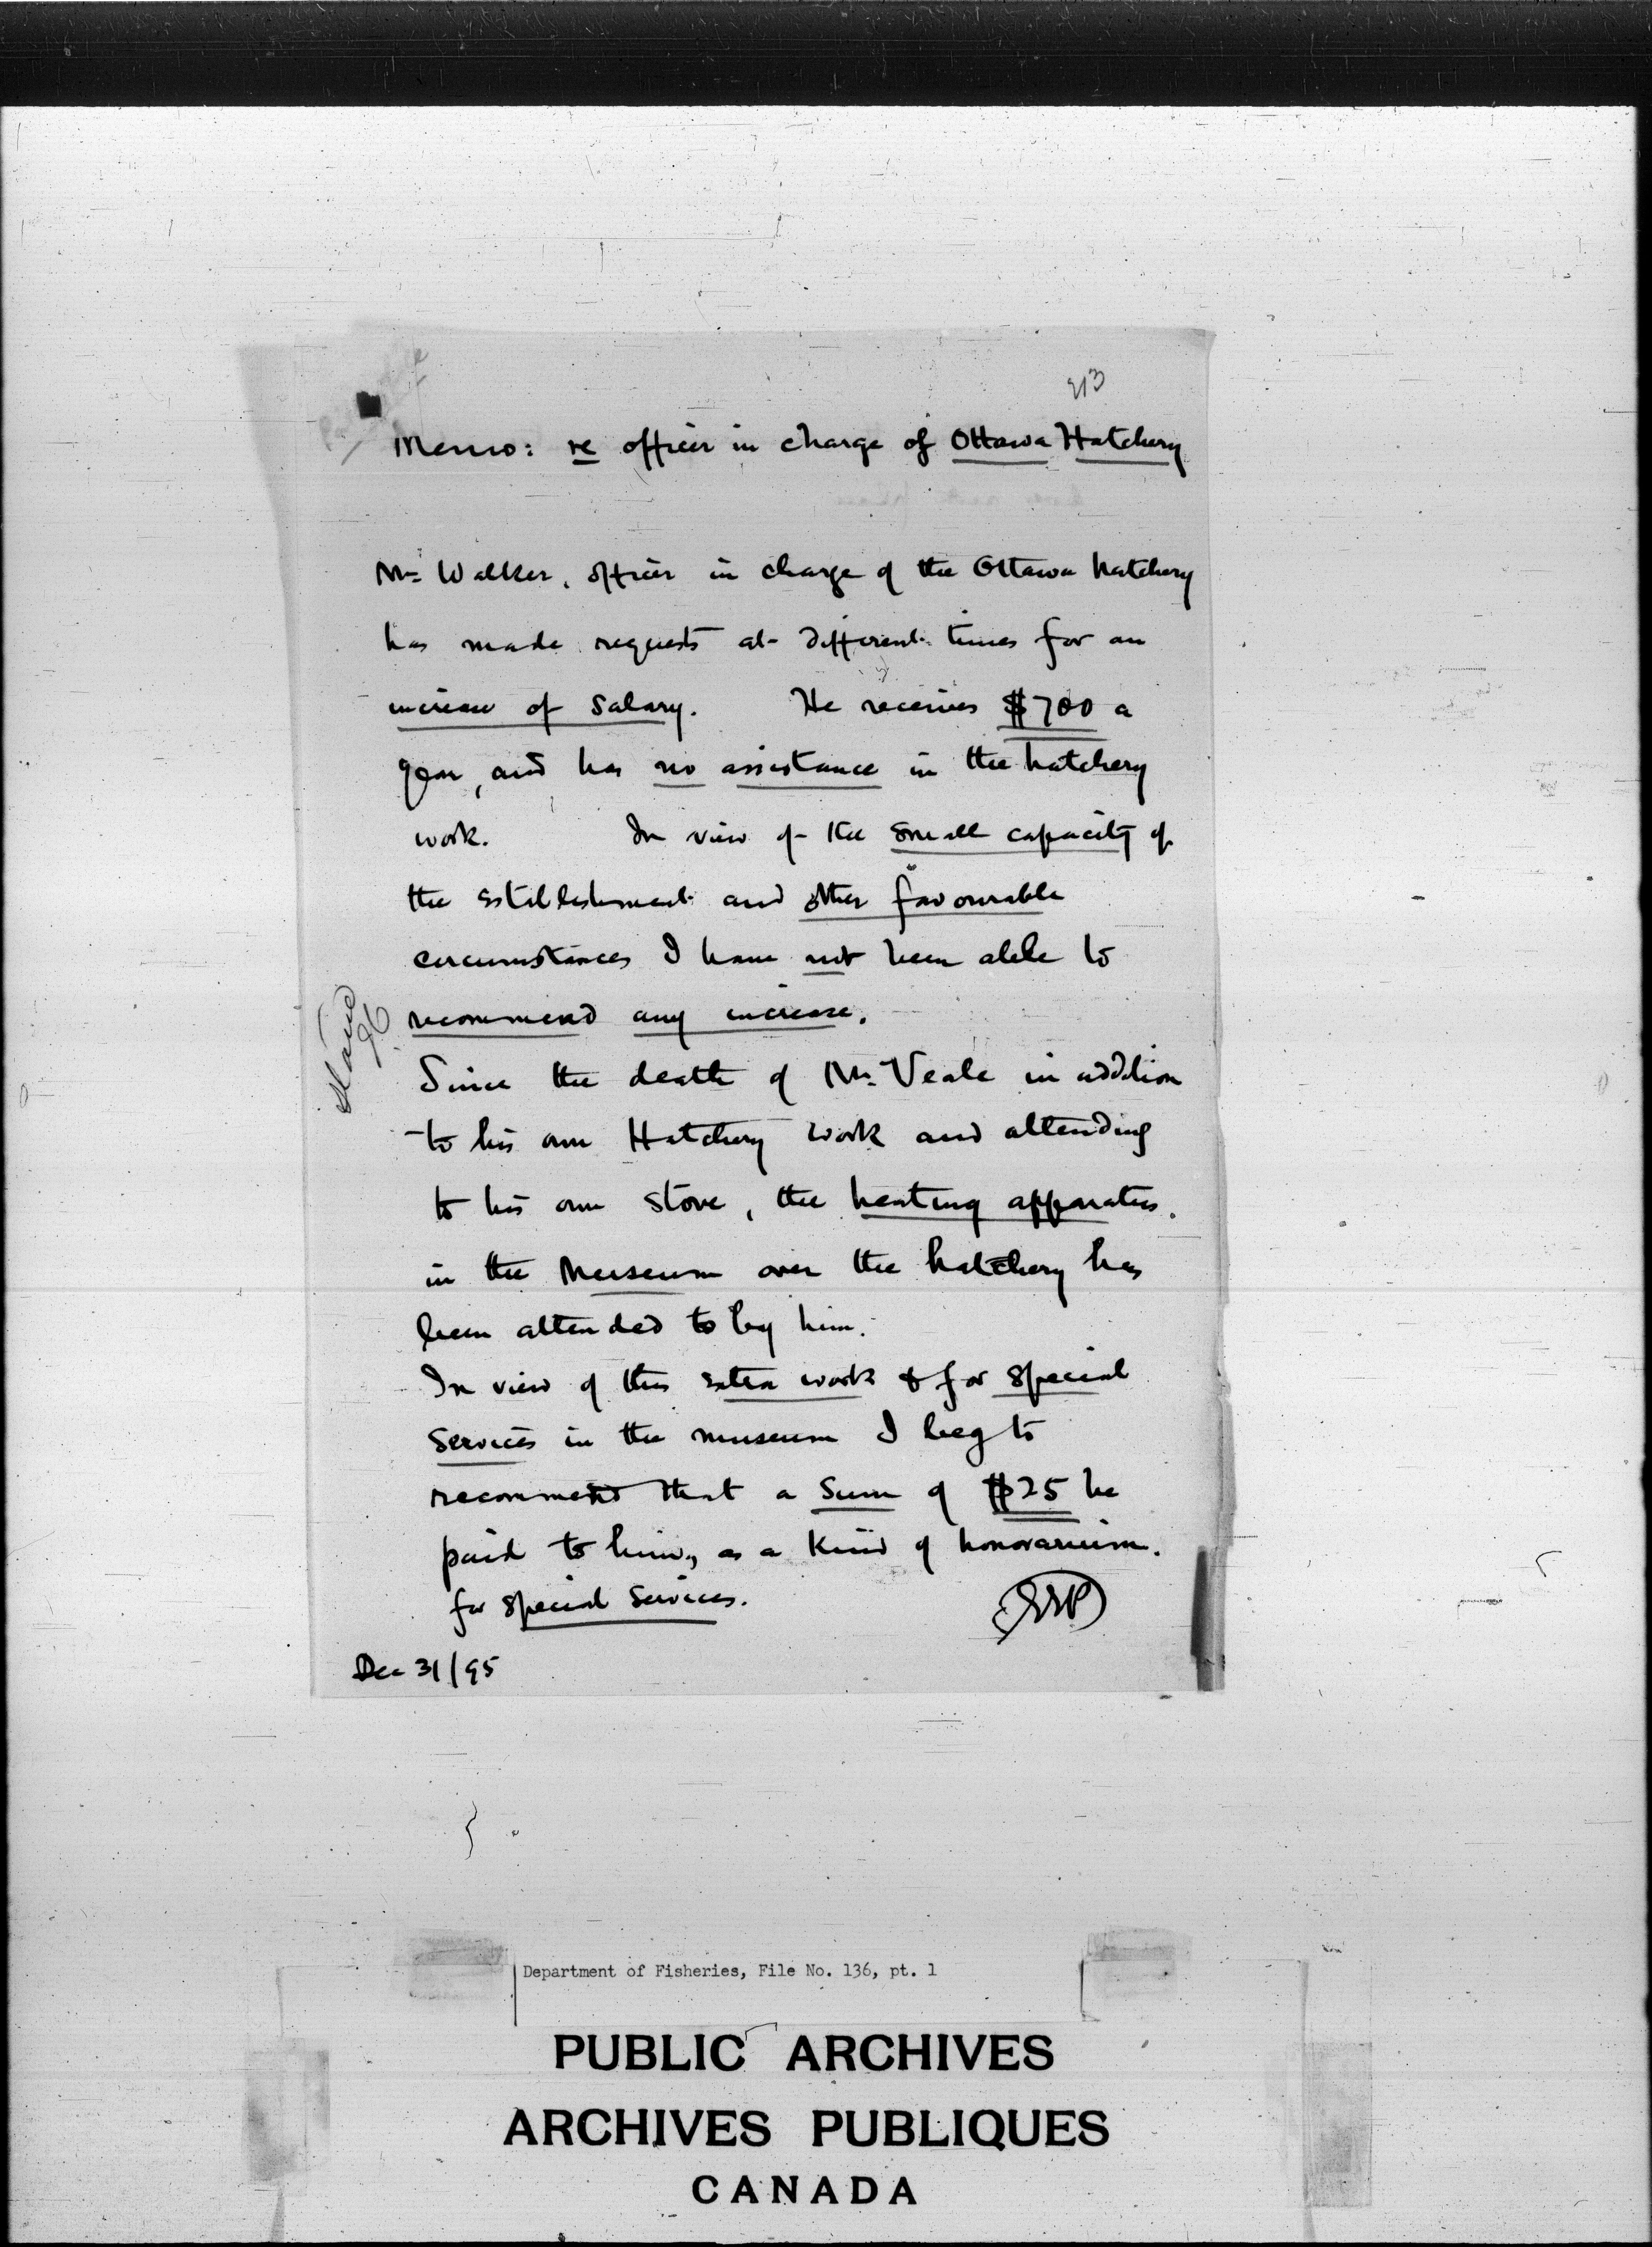 213
Memo: re officer in charge of Ottawa Hatchery
Mr. Walker, officer in charge of the Ottawa hatchery
has made requests at different times for an
increase of salary. He receives $700 a
year, and has no assistance in the hatchery
work. In view of the small capacity of
the establishment and other favourable
circumstances I have not been able to
recommend any increase.
Since the death of Mr. Veale in addition
to his own Hatchery work and attending
to his own stove, the heating apparatus
in the Museum over the hatchery has
been attended to by him.
In view of this extra work & for special
services in the museum I beg to
recommend that a sum of $25 be
paid to him, as a kind of honorarium.
for special services.
EEP
Dec 31/95
Department of Fisheries, File No. 136, pt. 1
PUBLIC ARCHIVES
ARCHIVES PUBLIQUES
CANADA